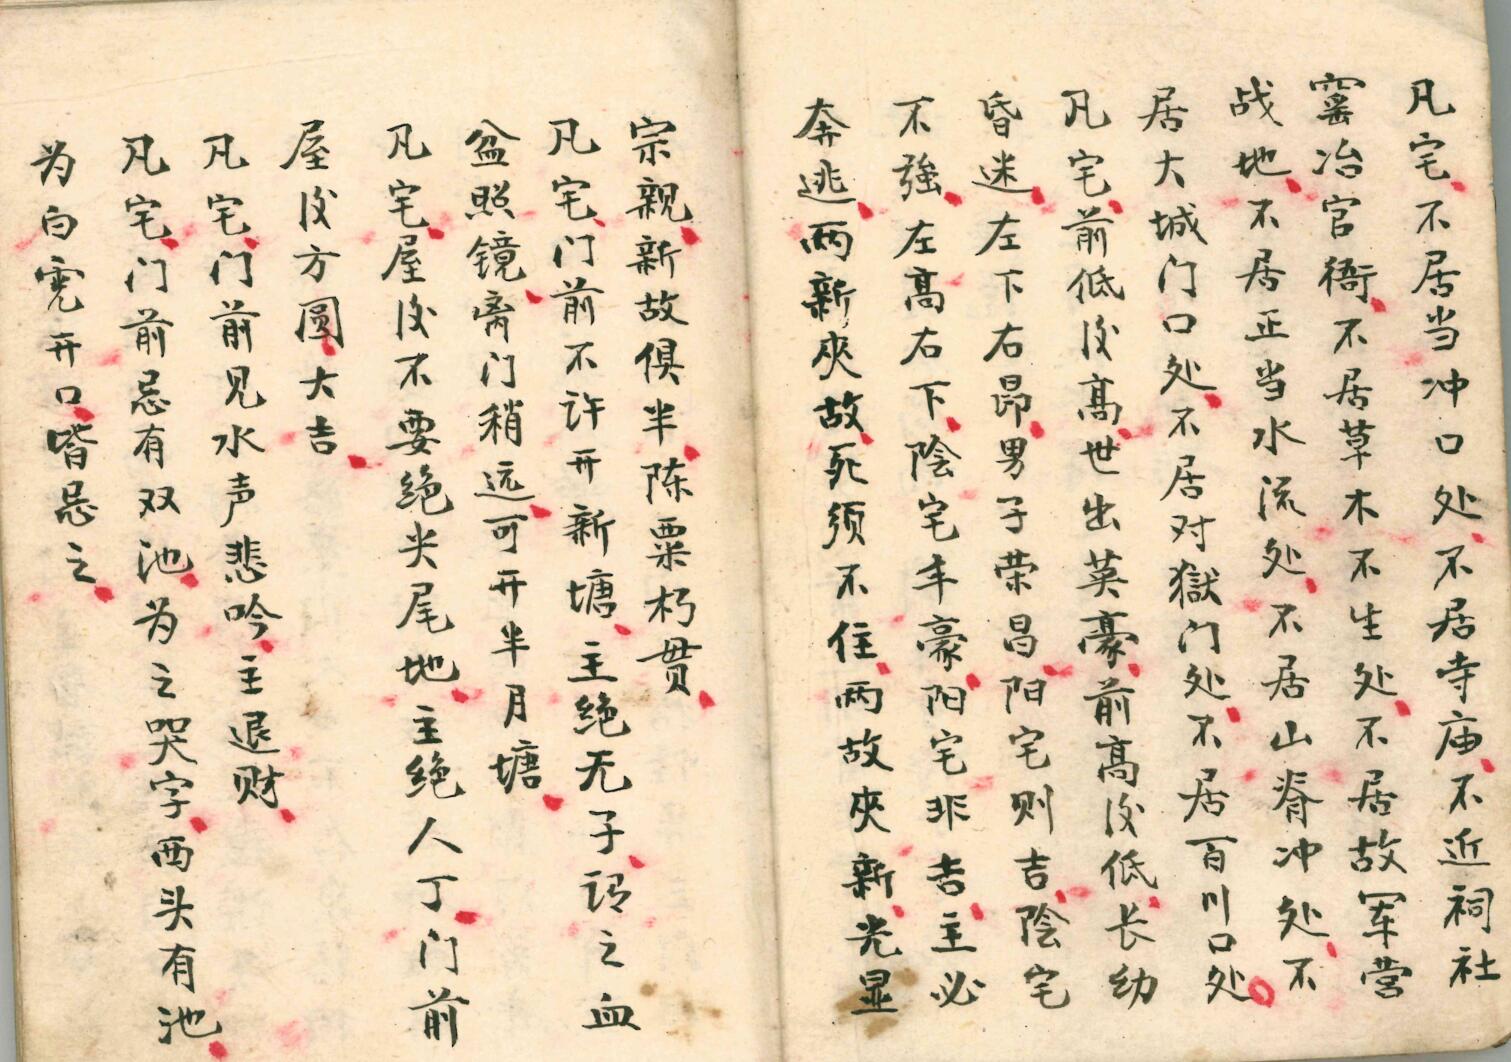 凡宅不居当冲口处不居寺庙不近祠社
窰冶官衙不居草木不生处不居故军营
战地不居正当水流处不居山脊冲处不
居大城门口处不居对獄门处不居百川口处
凡宅前低后高世出英豪前高后低长幼
昏迷左下右昂男子荣昌阳宅则吉陰宅
不強左高右下陰宅丰豪阳宅非吉主必
奔逃两新夾故死须不住两故夾新光显
宗親新故俱半陈粟朽贯
凡宅门前不许开新塘主绝无子谓之血
盆照镜离门稍远可开半月塘
凡宅屋后不要绝尖尾地主绝人丁门前
屋后方圆大吉
凡宅门前见水声悲吟主退财
凡宅门前忌有双池为之哭字西头有池
为白虎开口皆忌之